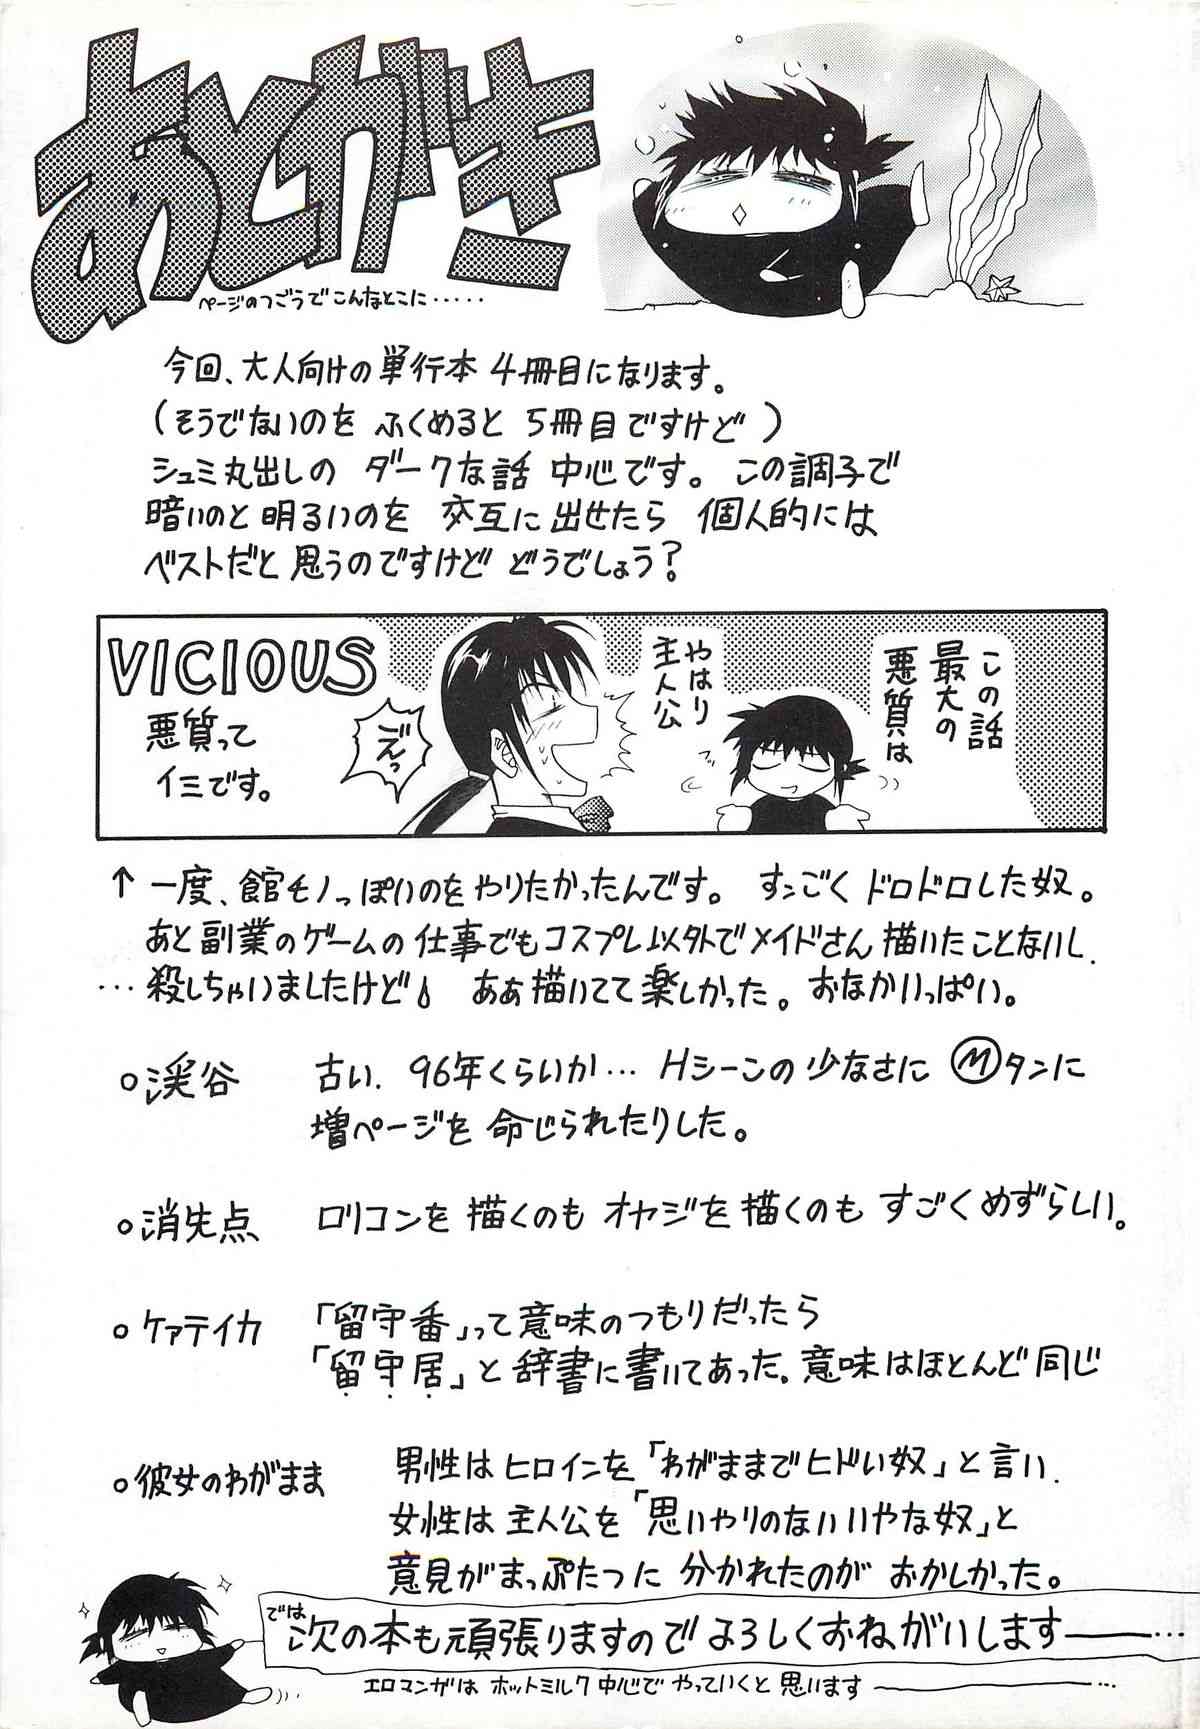 あとがき
ページのつごうでこんなとこに‥‥‥
今回、大人向けの単行本 4冊目になります。
(そうでないのを ふくめると 5冊目ですけど)
シュミ丸出しの ダークな話 中心です。この調子で
暗いのと 明るいのを 交互に 出せたら 個人的には
ベストだと 思うのですけど どうでしょう?
VICIOUS
悪質って
イミです。
ごえっ
この話
最大の
悪質は
やはり
主人公
↑ 一度、館モノっぽいのをやりたかったんです。 すンごく ドロドロした奴。
あと 副業のゲームの仕事でもコスプレ以外でメイドさん描いたことないし.
…殺しちゃいましたけど ああ描いてて楽しかった。おなかいっぱい。
○渓谷 古い. 96年くらいか… Hシーンの少なさに Ⓜタンに
増ページを 命じられたりした。
○消失点 ロリコンを描くのも オヤジを描くのも すごくめずらしい。
○ケァテイカ 「留守番」って意味のつもりだったら
「留守居」と辞書に書いてあった.意味はほとんど同じ
○彼女のわがまま 男性はヒロインを「わがままでヒドい奴」と言い.
女性は主人公を「思いやりのないいやな奴」と
意見がまっぷたつに 分かれたのが おかしかった。
では
次の本も頑張りますのでよろしくおねがいします――…
エロマンガは ホットミルク中心で やっていくと思います――…